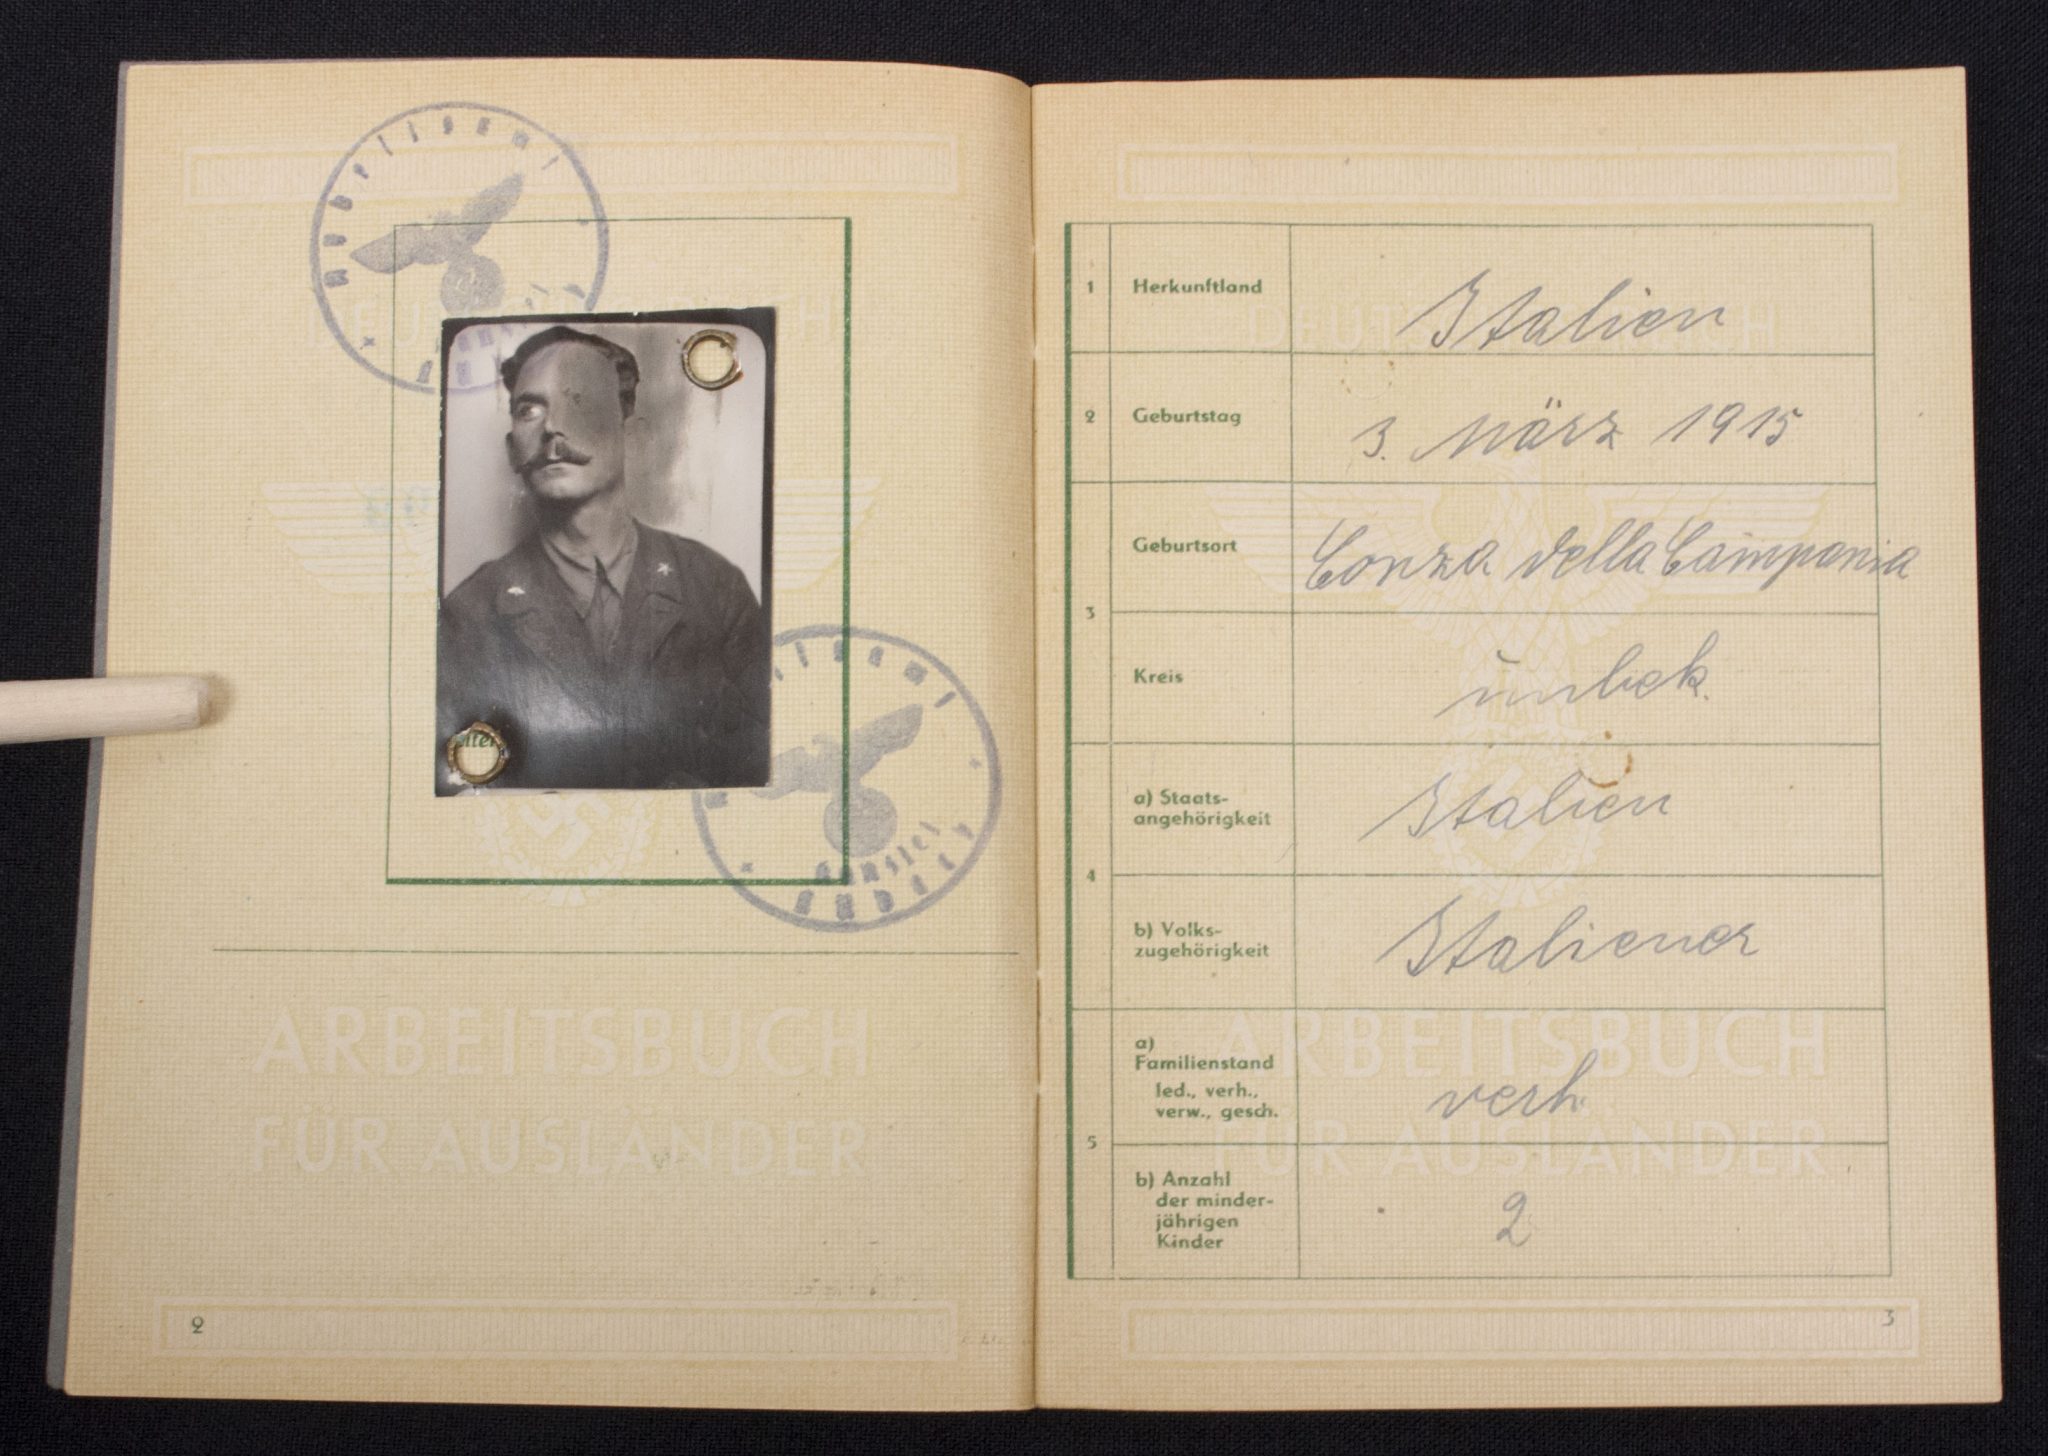 Arbeitsamt
DEUTSCHES REICH
ARBEITSBUCH
FÜR AUSLÄNDER
2
DEUTSCHES REICH
1 Herkunftland Italien
2 Geburtstag 3. März 1915
3
Geburtsort Conza della Campania
Kreis unbek.
4
a) Staats-
angehörigkeit Italien
b) Volks-
zugehörigkeit Italiener
5
a)
Familienstand
led., verh.,
verw., gesch. verh.
b) Anzahl
der minder-
jährigen
Kinder 2
ARBEITSBUCH
FÜR AUSLÄNDER
3